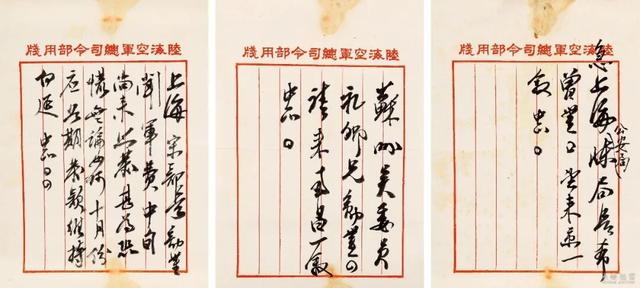 陸海空軍總司令部用牋
上海宋部長勛鑒
聞軍費中旬
尚未照發甚為恐
慌無論如何十月份
應如期發款維持
勿延 中正
陸海空軍總司令部用牋
蘇州吳委員
禮卿兄勛鑒
請來南昌一敘
中正
陸海空軍總司令部用牋
急上海公安局陳局長希
曾鑒 來京一
敘 中正